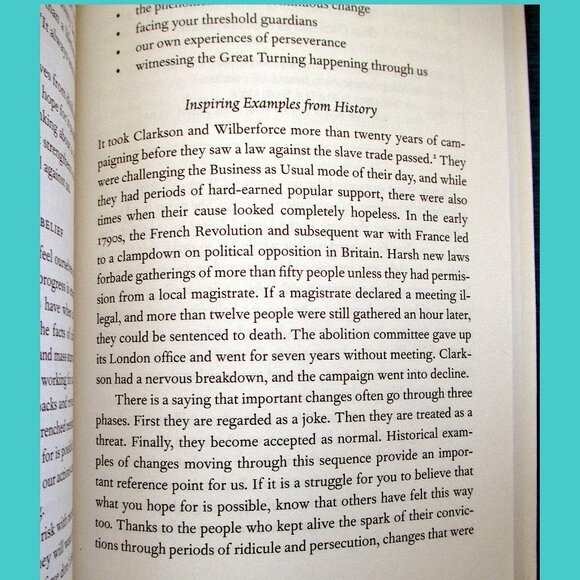 the phenomenon of discontinuous change
• facing your threshold guardians
• our own experiences of perseverance
• witnessing the Great Turning happening through us
Inspiring Examples from History
It took Clarkson and Wilberforce more than twenty years of cam-
paigning before they saw a law against the slave trade passed.² They
were challenging the Business as Usual mode of their day, and while
they had periods of hard-earned popular support, there were also
times when their cause looked completely hopeless. In the early
1790s, the French Revolution and subsequent war with France led
to a clampdown on political opposition in Britain. Harsh new laws
forbade gatherings of more than fifty people unless they had permis-
sion from a local magistrate. If a magistrate declared a meeting il-
legal, and more than twelve people were still gathered an hour later,
they could be sentenced to death. The abolition committee gave up
its London office and went for seven years without meeting. Clark-
son had a nervous breakdown, and the campaign went into decline.
There is a saying that important changes often go through three
phases. First they are regarded as a joke. Then they are treated as a
threat. Finally, they become accepted as normal. Historical exam-
ples of changes moving through this sequence provide an impor-
tant reference point for us. If it is a struggle for you to believe that
what you hope for is possible, know that others have felt this way
too. Thanks to the people who kept alive the spark of their convic-
tions through periods of ridicule and persecution, changes that were